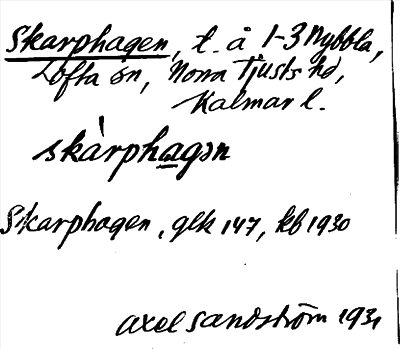 Skarphagen, t. å 1-3 Nybbla,
Lofta sn, Norra Tjusts hd,
Kalmar l.
skàrphagən
Skarphagen, gek 147, kb 1930
Axel Sandström 1931